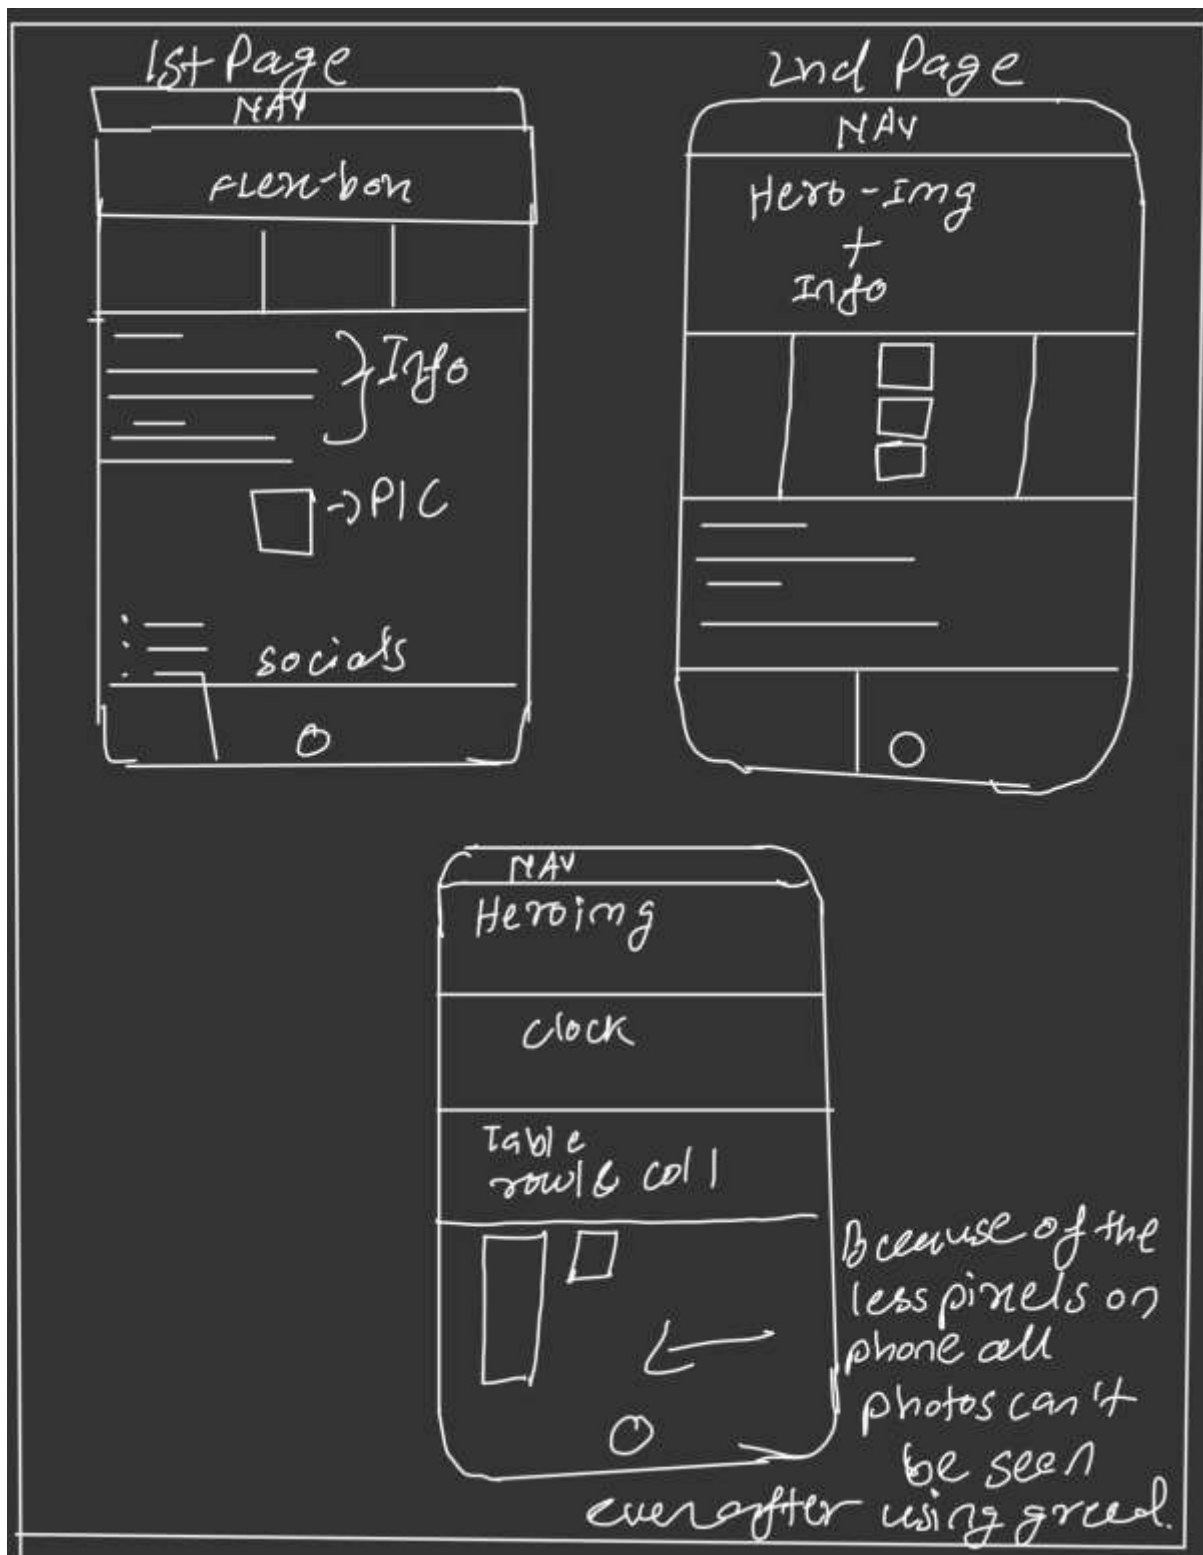 1st Page
NAV
FLEX-box
Info
→PIC
socials
2nd Page
NAV
Hero-Img
+
Info
NAV
Heroimg
clock
Table
row1& col 1
Because of the
less pixels on
phone all
photos can't
be seen
even after using greed.